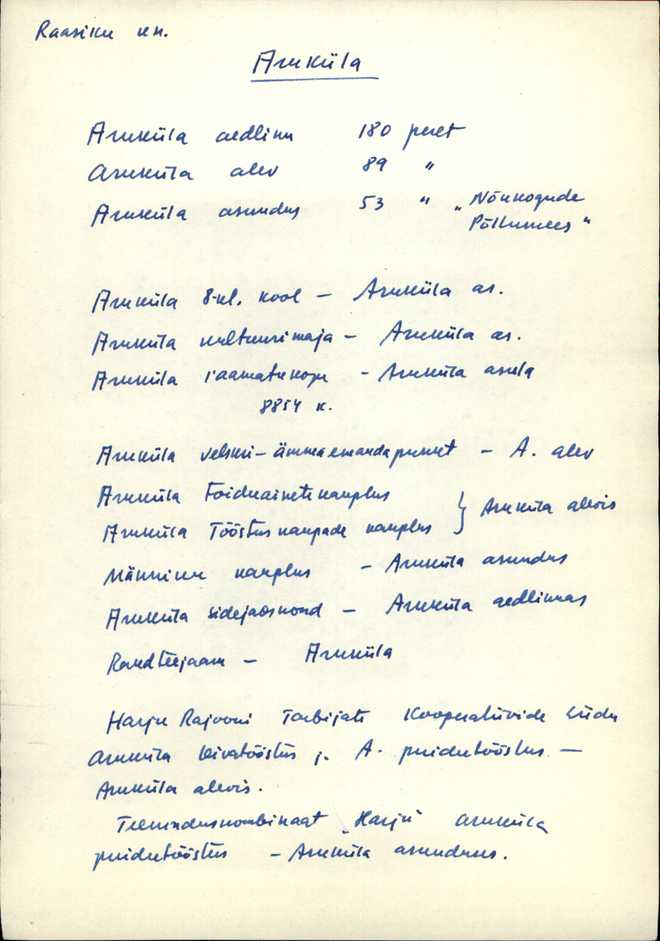 Raasiku kn.
Aruküla
Aruküla aedlinn 180 peret
Aruküla alev 89 "
Aruküla asundus 53 " „Nõukogude
Põllumees"
Aruküla 8-kl. kool – Aruküla as.
Aruküla kultuurimaja – Aruküla as.
Aruküla raamatukogu – Aruküla asula
8854 k.
Aruküla velskri-ämmaemandapunkt – A. alev
Aruküla Toiduainete kauplus
Aruküla Tööstuskaupade kauplus } Aruküla alevis
Männiku kauplus – Aruküla asundus
Aruküla sidejaoskond – Aruküla aedlinnas
Raudteejaam – Aruküla
Harju Rajooni Tarbijate Kooperatiivide Liidu
Aruküla leivatööstus j. A. puidutööstus –
Aruküla alevis.
Teeninduskombinaat „Harju" Aruküla
puidutööstus – Aruküla asunduses.